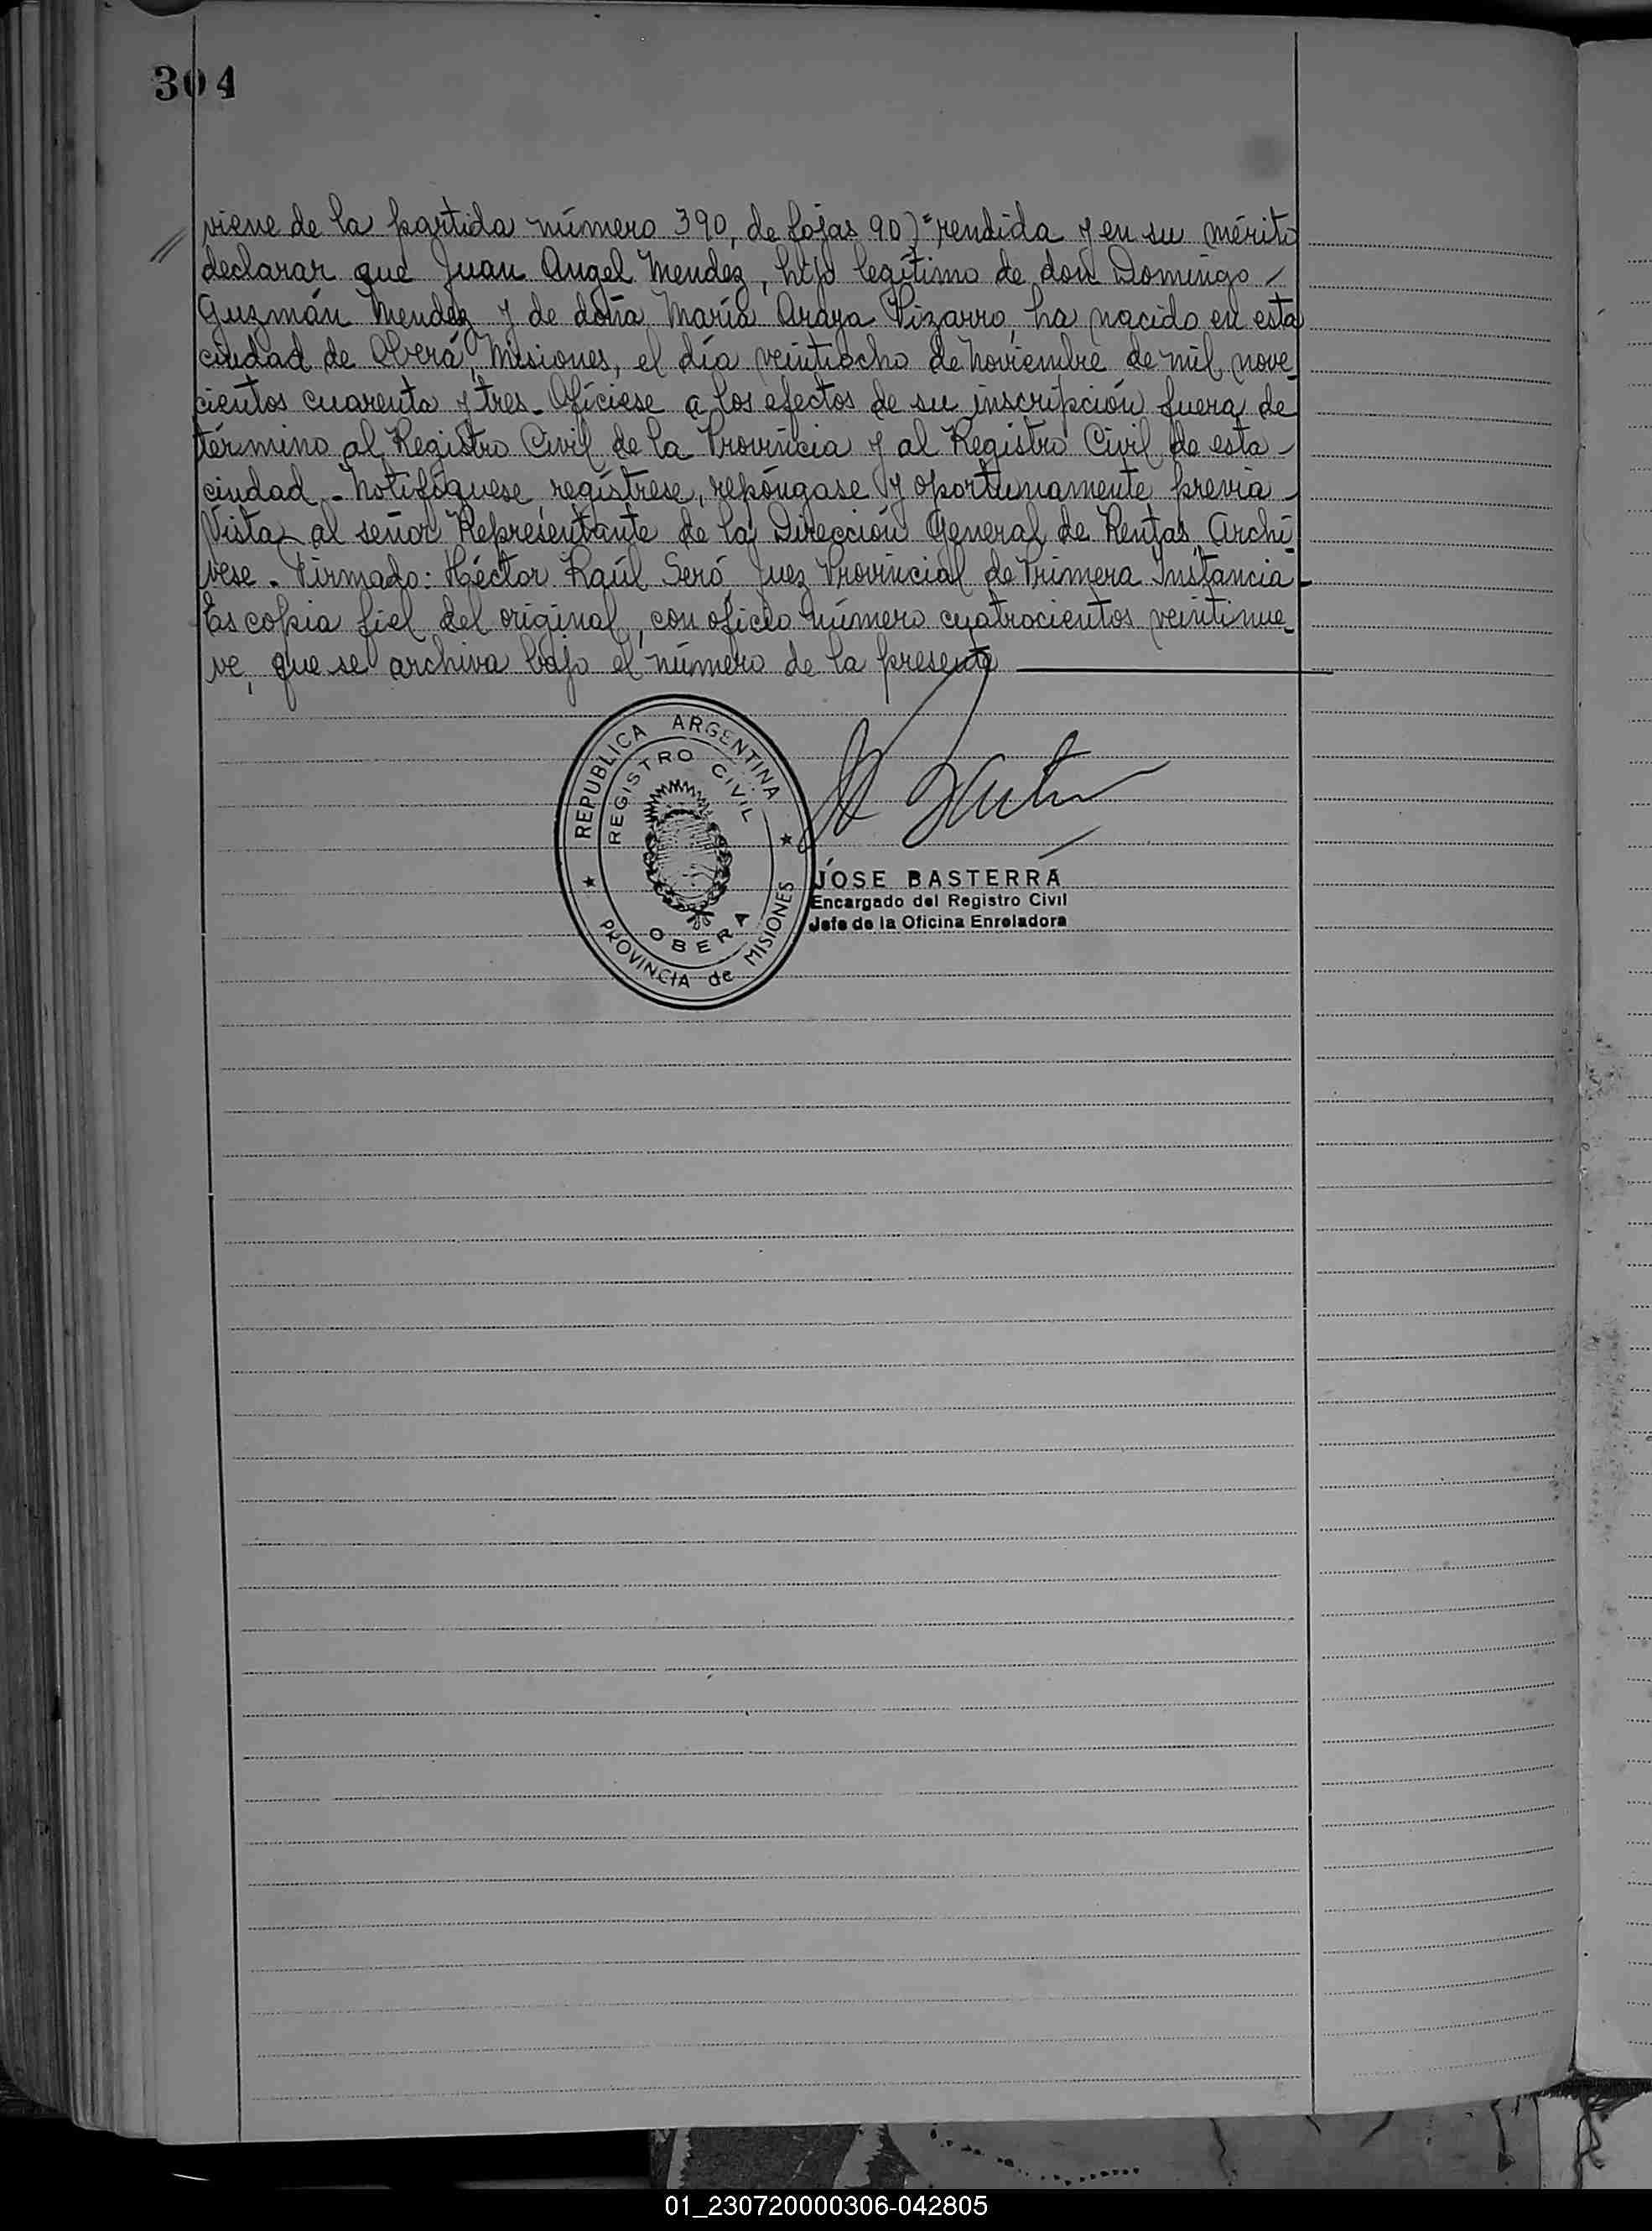 304
viene de la partida número 390, de fojas 90)=rendida y en su mérito
declarar que Juan Angel Mendez, hijo legítimo de don Domingo -
Guzmán Mendez y de doña María Araya Pizarro, ha nacido en esta
ciudad de Oberá, Misiones, el día veintiocho de Noviembre de mil nove_
cientos cuarenta y tres_ Ofíciese a los efectos de su inscripción fuera de
término al Registro Civil de la Provincia y al Registro Civil de esta -
ciudad_ Notifíquese regístrese, repóngase y oportunamente previa -
Vista al señor Representante de la Dirección General de Rentas, Archí_
vese_ Firmado: Héctor Raúl Seró, Juez Provincial de Primera Instancia_
Es copia fiel del original, con oficio número cuatrocientos veintinue_
ve, que se archiva bajo el número de la presente
REPUBLICA ARGENTINA
REGISTRO CIVIL
OBERA
PROVINCIA de MISIONES
JOSE BASTERRA
Encargado del Registro Civil
Jefe de la Oficina Enroladora
01_230720000306-042805